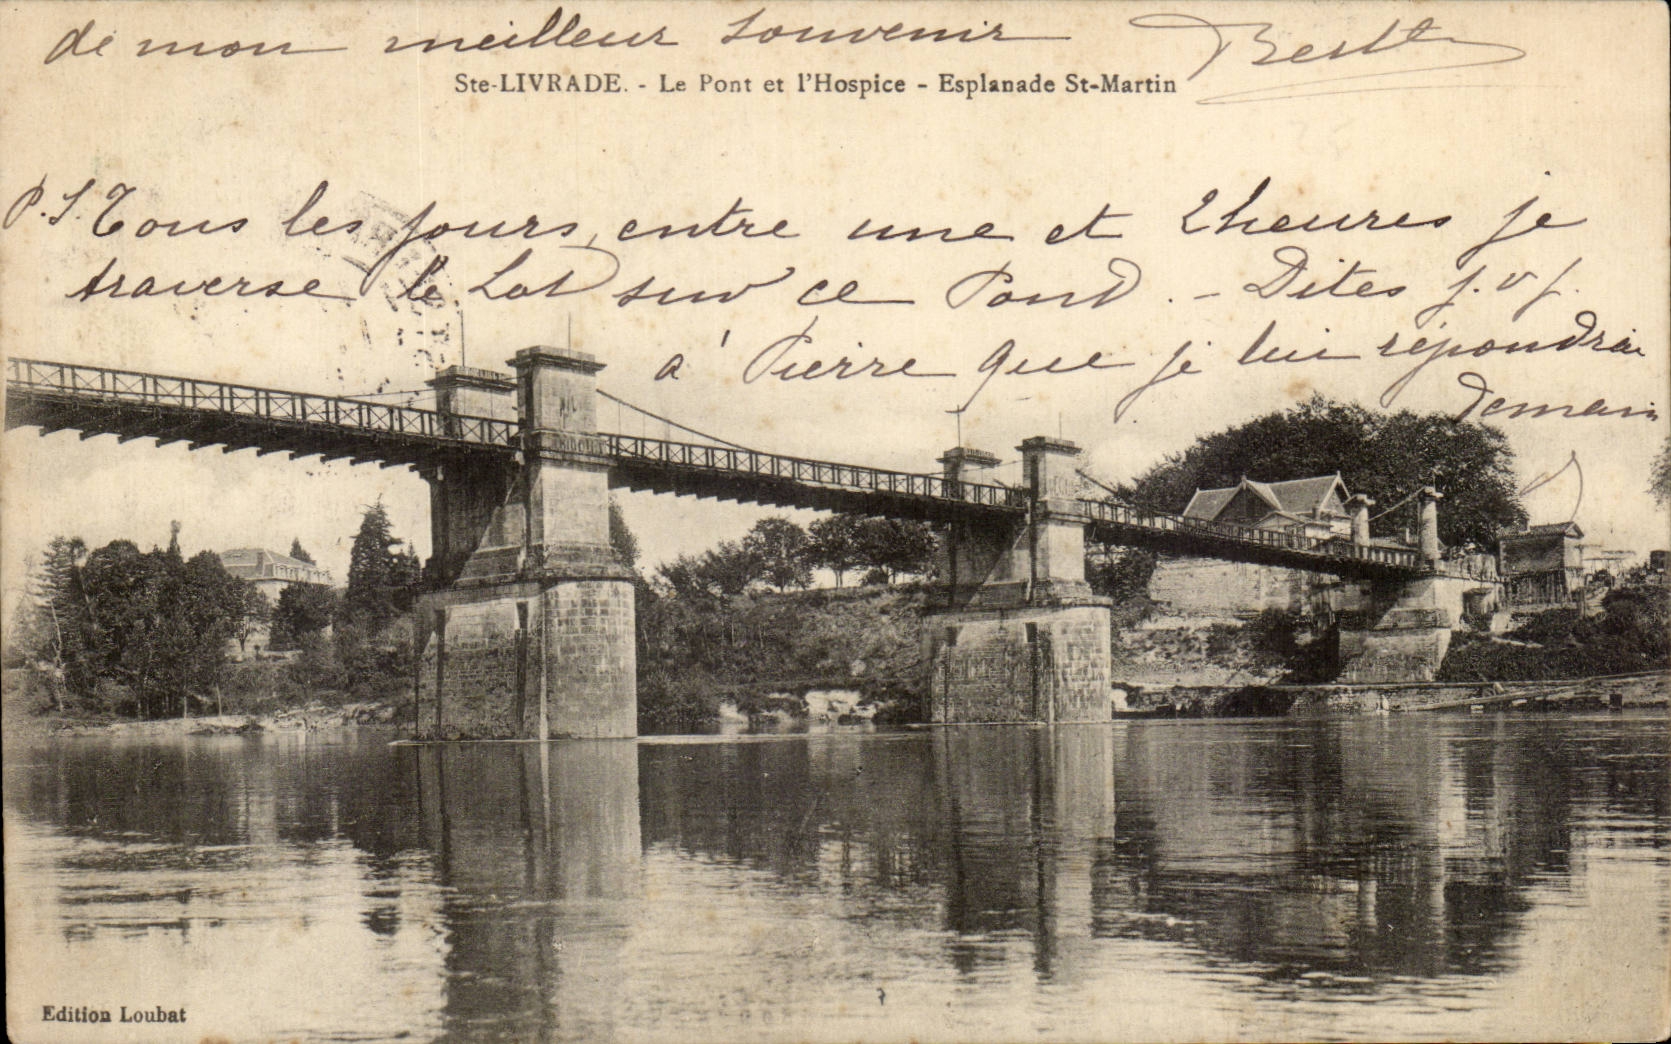 de mon meilleur souvenir Berthe
Ste-LIVRADE. - Le Pont et l'Hospice - Esplanade St-Martin
P.S. Tous les jours, entre une et 2 heures je
traverse le Lot sur ce Pont. - Dites s.v.p.
à Pierre que je lui répondrai
demain
Edition Loubat